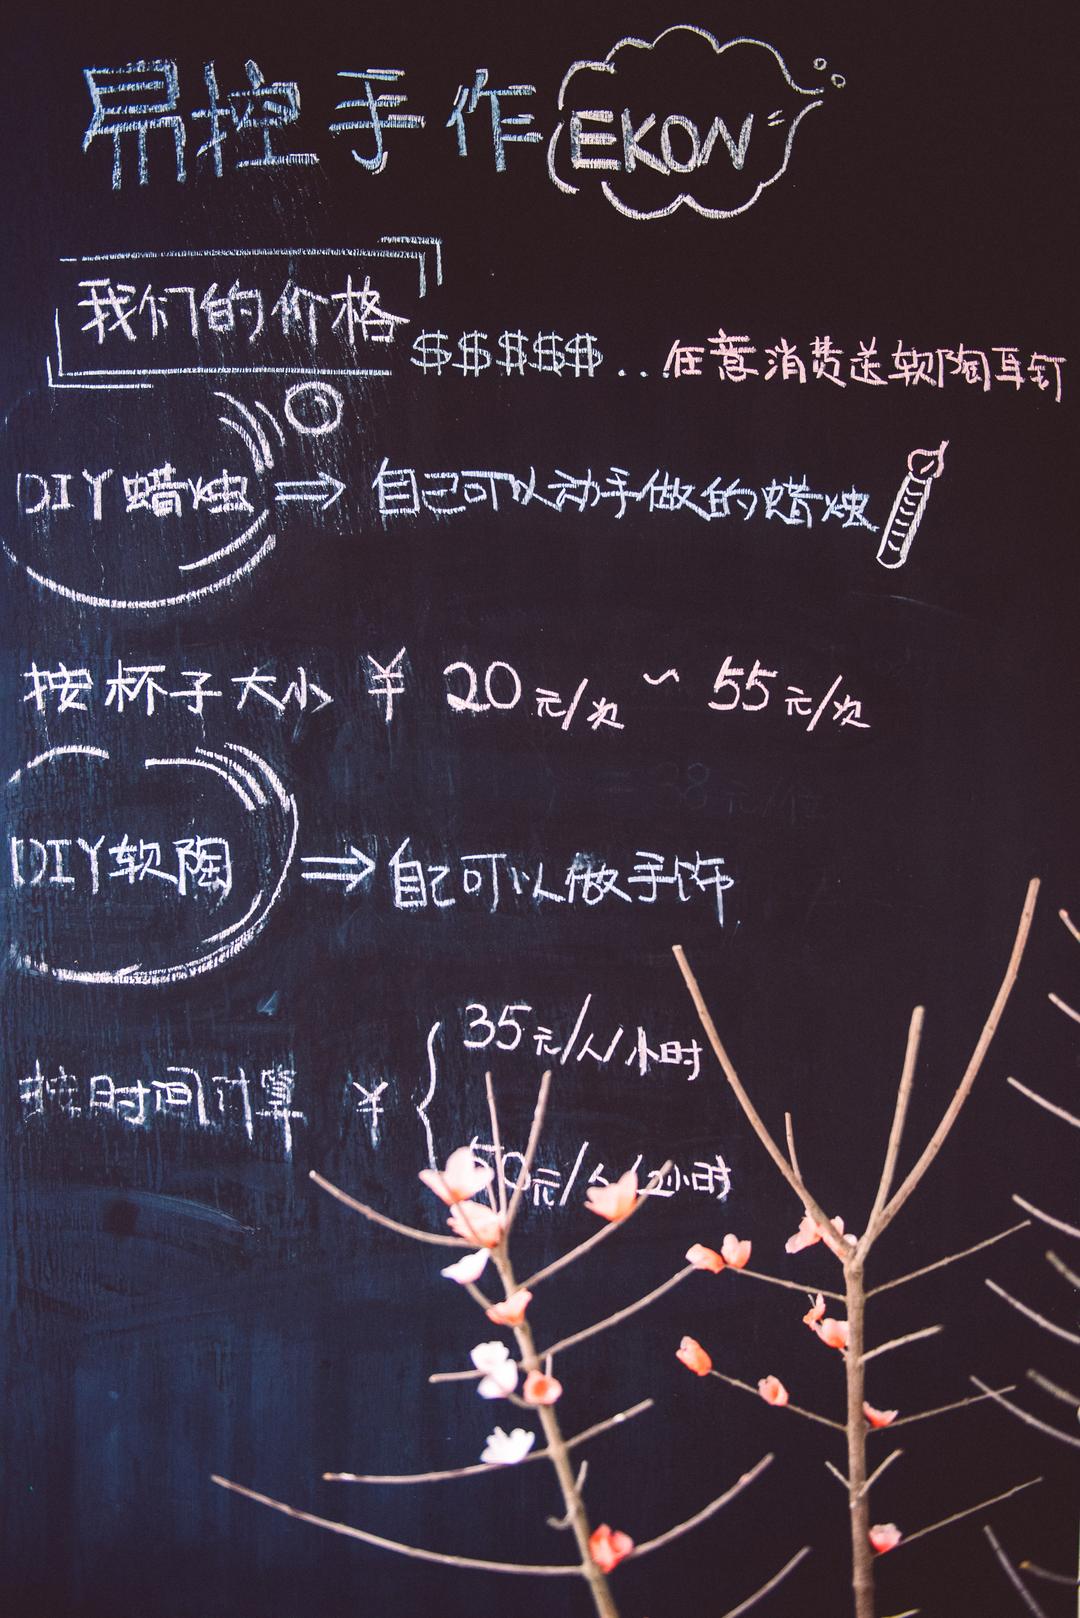 易控手作 EKON
我们的价格 $$$$$...任意消费送软陶耳钉
DIY蜡烛 ⇒ 自己可以动手做的蜡烛
按杯子大小 ¥ 20元/次 ~ 55元/次
DIY软陶 ⇒ 自己可以做手饰
按时间计算 ¥ { 35元/人/小时
50元/人/2小时